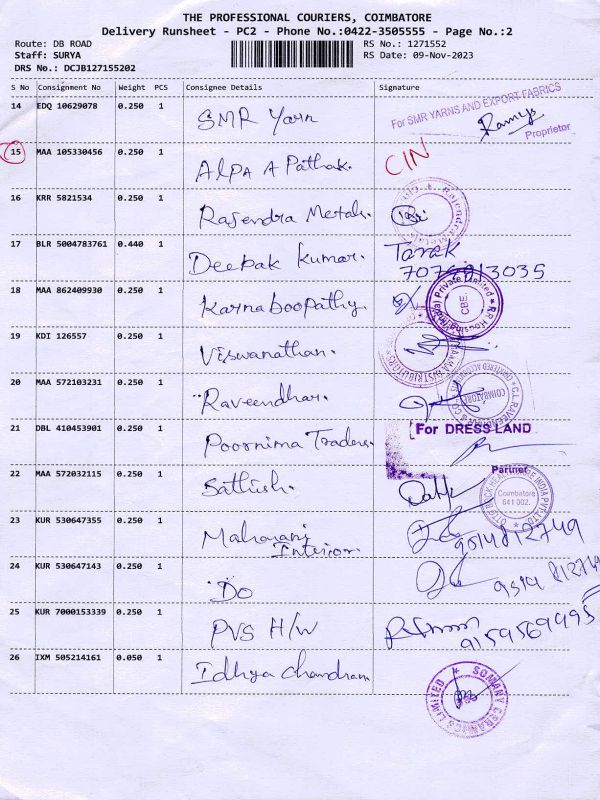 THE PROFESSIONAL COURIERS, COIMBATORE
Delivery Runsheet - PC2 - Phone No.:0422-3505555 - Page No.:2
Route: DB ROAD RS No.: 1271552
Staff: SURYA RS Date: 09-Nov-2023
DRS No.: DCJB127155202
S No Consignment No Weight PCS Consignee Details Signature
14 EDQ 10629078 0.250 1 SMR Yarn For SMR YARNS AND EXPORT FABRICS
Proprietor
15 MAA 105330456 0.250 1 Alpa A Pathak. CIN
16 KRR 5821534 0.250 1 Rajendra Metals.
17 BLR 5004783761 0.440 1 Deepak kumar. Tarak
18 MAA 862409930 0.250 1 Karnaboopathy. CBE
19 KDI 126557 0.250 1 Viswanathan.
20 MAA 572103231 0.250 1 Raveendhar. COIMBATORE
21 DBL 410453901 0.250 1 Poornima Traders. For DRESS LAND
Partner
22 MAA 572032115 0.250 1 Sathish. Coimbatore
641 002.
23 KUR 530647355 0.250 1 Maharani
Interior. 9514812749
24 KUR 530647143 0.250 1 Do 9514 812749
25 KUR 7000153339 0.250 1 PVS H/W
9159569495
26 IXM 505214161 0.050 1 Idhya chandram
SOMANY CERAMICS LIMITED